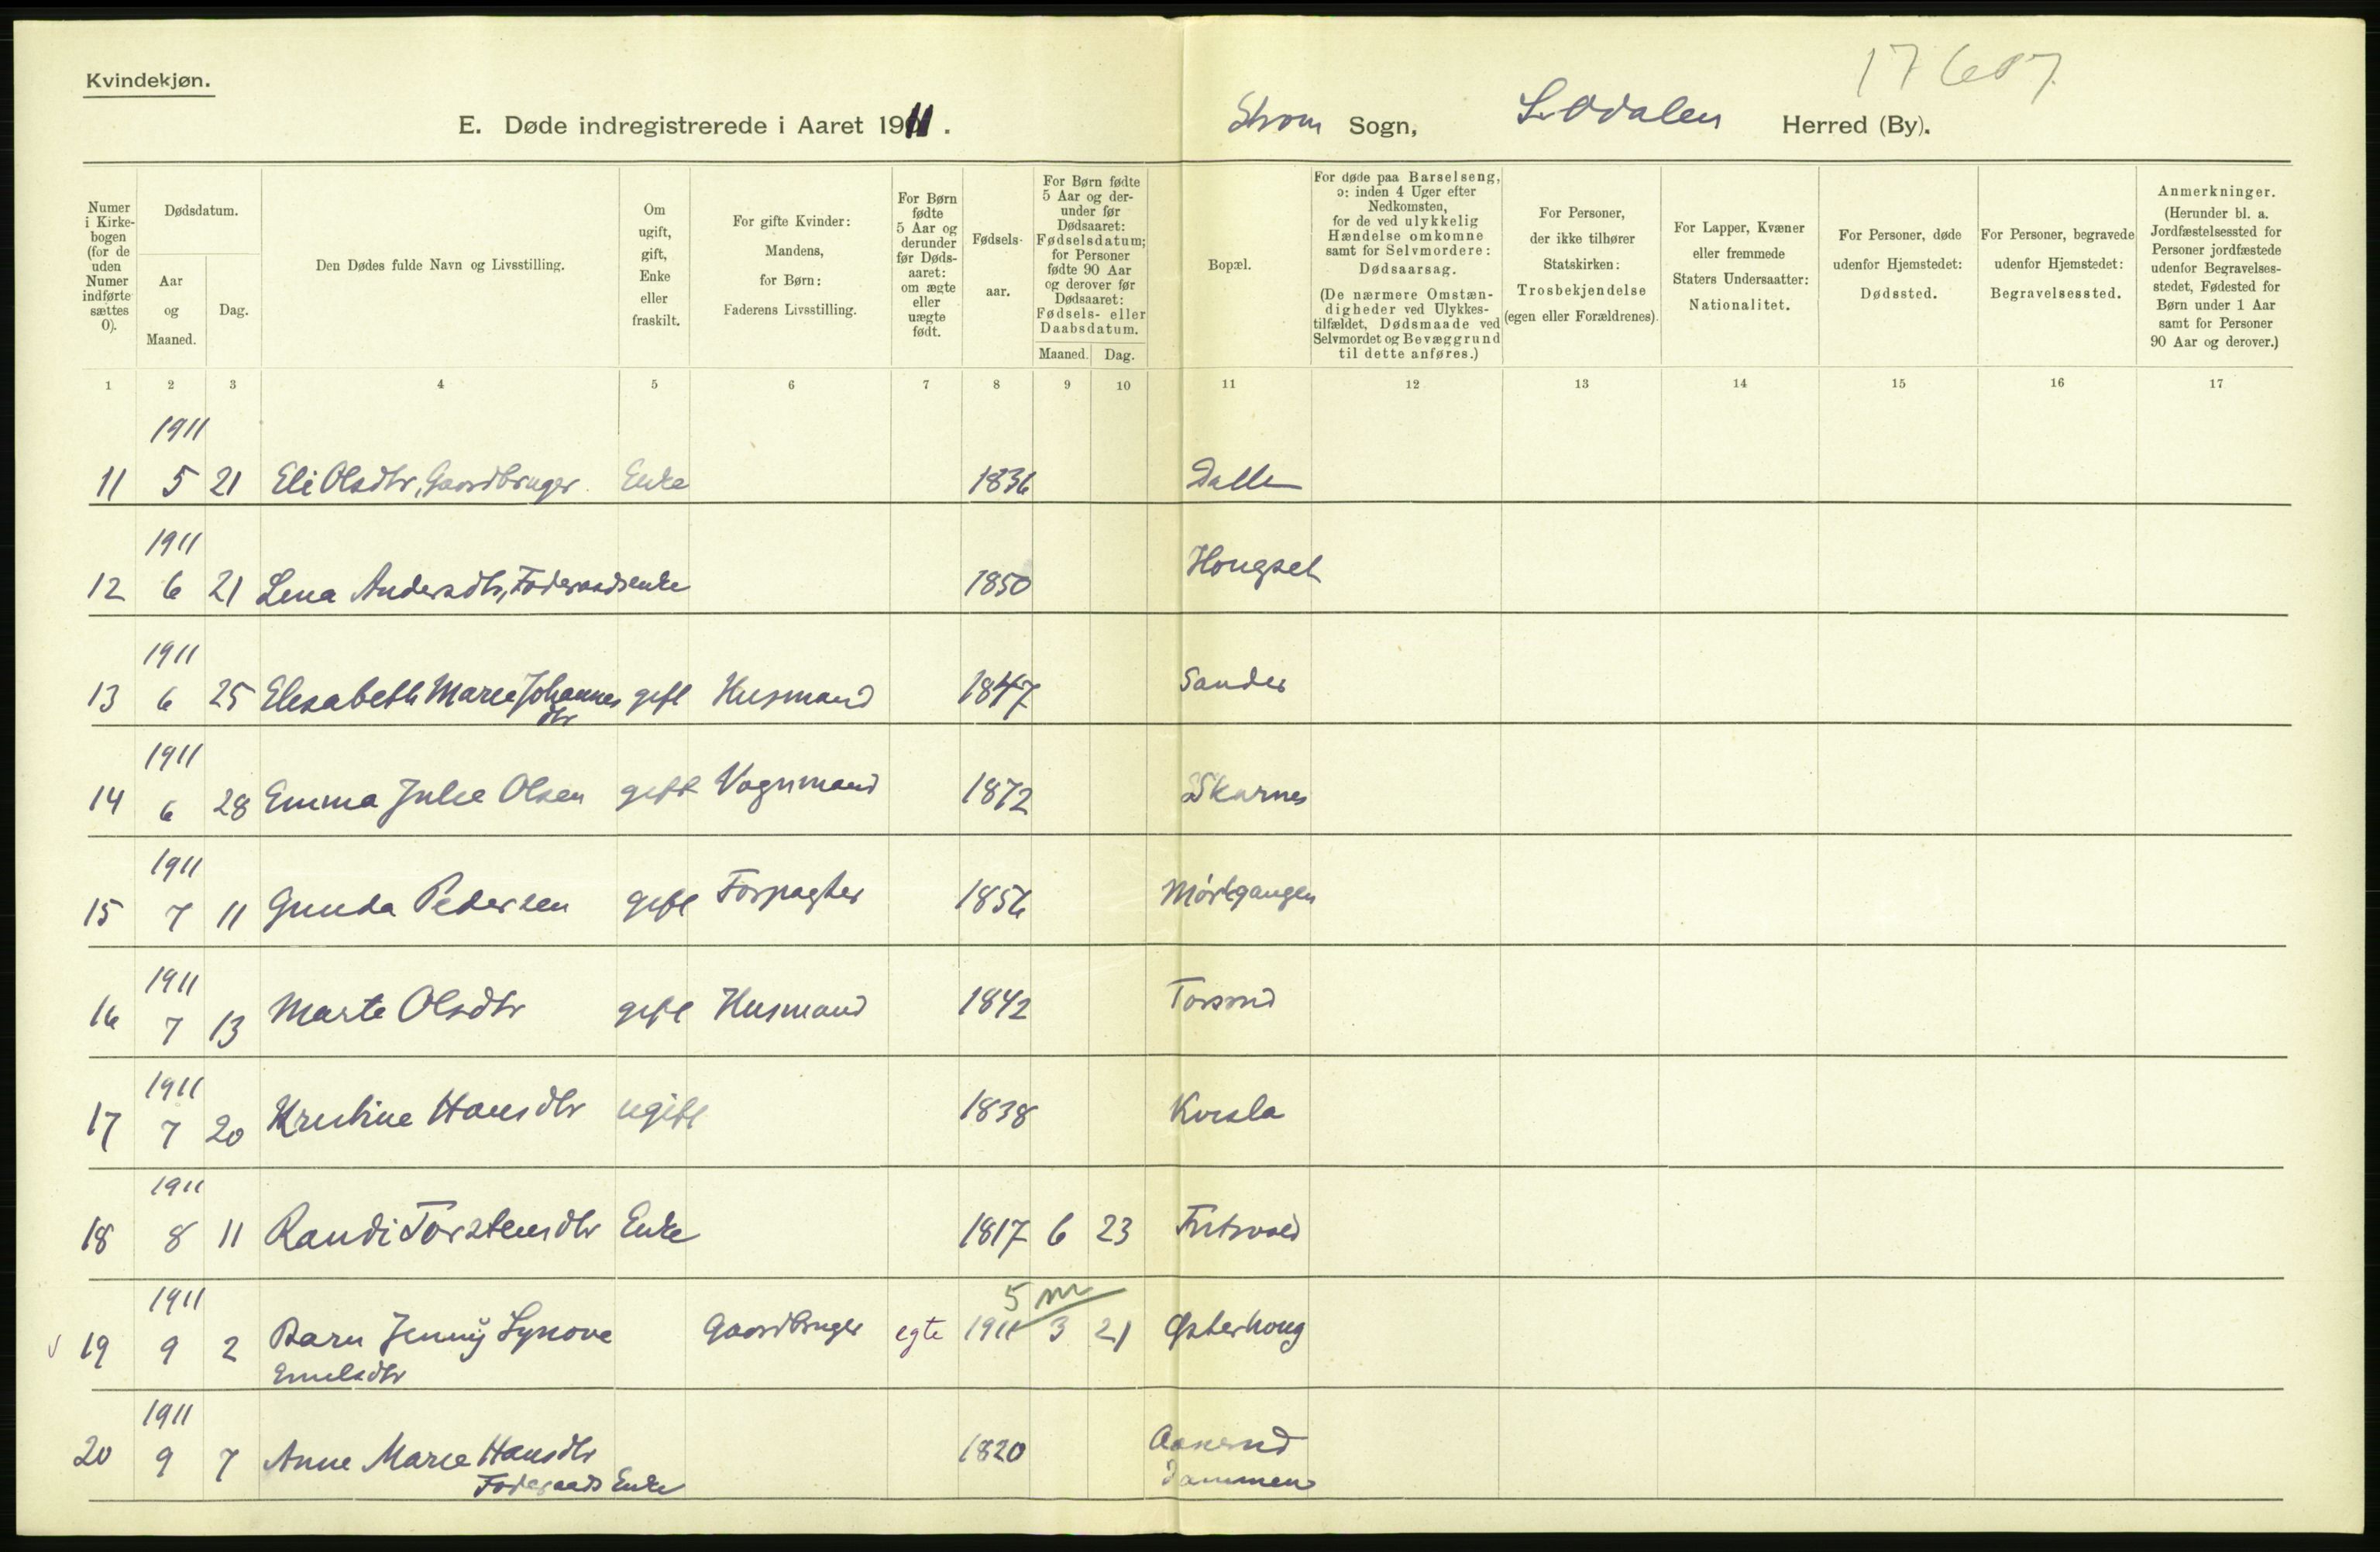 Kvindekjøn.
17607
E. Døde indregistrerede i Aaret 1911.
Strøm Sogn, S. Odalen Herred (By).
Numer i Kirke-bogen (for de uden Numer indførte sættes 0).
Dødsdatum.
Aar og Maaned.
Dag.
Den Dødes fulde Navn og Livsstilling.
Om ugift, gift, Enke eller fraskilt.
For gifte Kvinder: Mandens, for Børn: Faderens Livsstilling.
For Børn fødte 5 Aar og derunder før Døds-aaret: om ægte eller uægte født.
Fødsels-aar.
For Børn fødte 5 Aar og der-under før Dødsaaret: Fødselsdatum; for Personer fødte 90 Aar og derover før Dødsaaret: Fødsels- eller Daabsdatum.
Maaned. Dag.
Bopæl.
For døde paa Barselseng, ɔ: inden 4 Uger efter Nedkomsten, for de ved ulykkelig Hændelse omkomne samt for Selvmordere: Dødsaarsag. (De nærmere Omstæn-digheder ved Ulykkes-tilfældet, Dødsmaade ved Selvmordet og Bevæggrund til dette anføres.)
For Personer, der ikke tilhører Statskirken: Trosbekjendelse (egen eller Forældrenes).
For Lapper, Kvæner eller fremmede Staters Undersaatter: Nationalitet.
For Personer, døde udenfor Hjemstedet: Dødssted.
For Personer, begravede udenfor Hjemstedet: Begravelsessted.
Anmerkninger. (Herunder bl. a. Jordfæstelsessted for Personer jordfæstede udenfor Begravelses-stedet, Fødested for Børn under 1 Aar samt for Personer 90 Aar og derover.)
1 2 3 4 5 6 7 8 9 10 11 12 13 14 15 16 17
1911
11 5 21 Eli Olsdtr, Gaardbruger Enke 1836 Dalle
1911
12 6 21 Lena Andersdtr,Føderaadsenke 1850 Hougset
1911
13 6 25 Elisabeth Marie Johannes gift Husmand 1847 Sander
dtr
1911
14 6 28 Emma Julie Olsen gift Vognmand 1872 Skarnes
1911
15 7 11 Gunda Pedersen gift Forpagter 1856 Mørtgangen
1911
16 7 13 Marte Olsdtr gift Husmand 1842 Torsrud
1911
17 7 20 Kristine Hansdtr ugift 1838 Kvisla
1911
18 8 11 Randi Torstensdtr Enke 1817 6 23
1911
5 m
19 9 2 Barn Jenny Synøve Gaardbruger egte 1911 3 21 Østerhoug
Emilsdtr
1911
20 9 7 Anne Marie Hansdtr 1820 Aaserud
Føderaads Enke Dammen